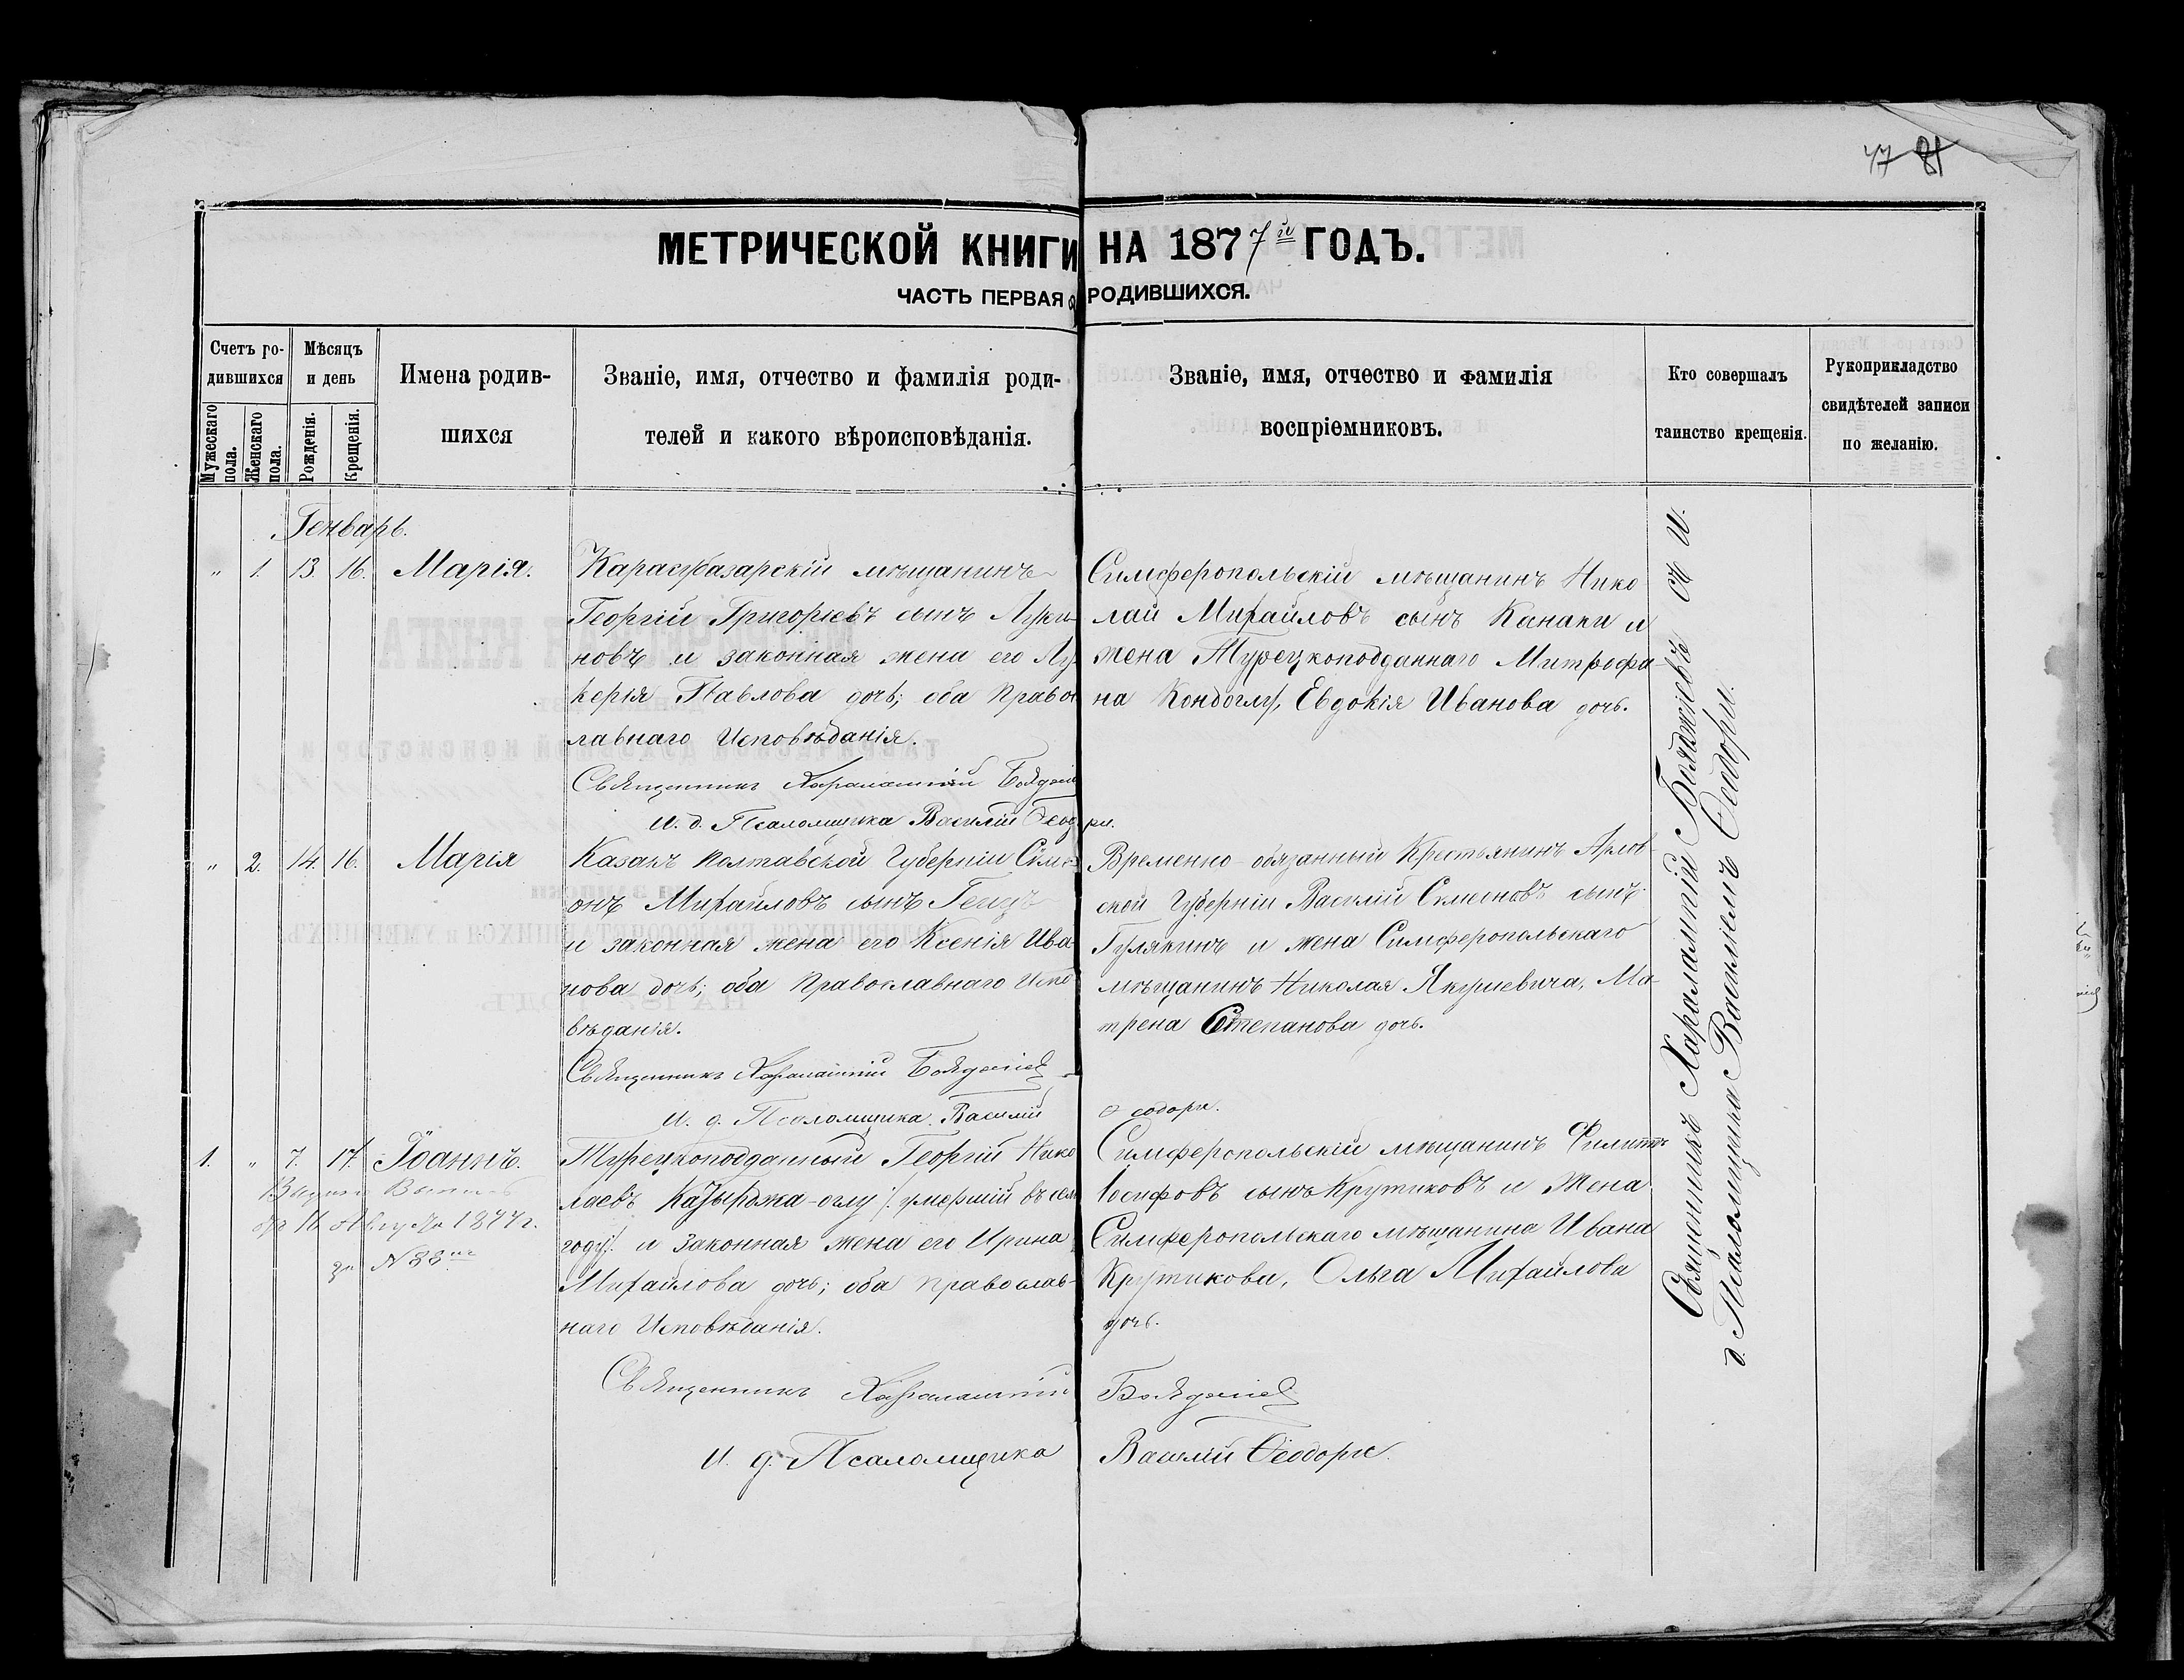 47 81
МЕТРИЧЕСКОЙ КНИГИ НА 1877й ГОДЪ.
ЧАСТЬ ПЕРВАЯ о РОДИВШИХСЯ.
Счетъ ро-
дившихся
Мужескаго
пола.
Женскаго
пола.
Мѣсяцъ
и день
Рожденія.
Крещенія.
Имена родив-
шихся
Званіе, имя, отчество и фамилія роди-
телей и какого вѣроисповѣданія.
Званіе, имя, отчество и фамилія
воспріемниковъ.
Кто совершалъ
таинство крещенія.
Рукоприкладство
свидѣтелей записи
по желанію.
Генварь.
„ 1. 13. 16. Марія.
Карасубазарскій мѣщанинъ
Георгій Григорьевъ сынъ Луки-
новъ и законная жена его Лу-
керія Павлова дочь; оба Правос
лавнаго Исповѣданія.
Священникъ Харалампій
И. д. Псаломщика Василій Ѳеодори.
Симферопольскій мѣщанинъ Нико
лай Михайловъ сынъ Канаки и
жена Турецкоподданнаго Митрофа-
на Кондоглу, Евдокія Иванова дочь.
„ 2. 14. 16. Марія
Казакъ Полтавской Губерніи Симе-
онъ Михайловъ сынъ
и законная жена его Ксенія Ива-
нова дочь; оба Православнаго Испо
вѣданія.
Священникъ Харалампій
И. д. Псаломщика Василій Ѳеодори.
Временно-обязанный Крестьянинъ Арлов-
ской Губерніи Василій Семеновъ сынъ
Гулякинъ и жена Симферопольскаго
мѣщанинъ Николая Якушевича, Ма-
трена Степанова дочь.
1. „ 7. 17. Іоаннъ.
16 1877 г.
за № 38
Турецкоподданный Георгій Нико
лаевъ Казырджа-оглу /. умершій въ сем
году/. и Законная жена его Ирина
Михайлова дочь; оба православ-
наго Исповѣданія.
Священникъ Харалампій
И. д. Псаломщика Василій Ѳеодори.
Симферопольскій мѣщанинъ Филиппъ
Іосифовъ сынъ Крутиковъ и Жена
Симферопольскаго мѣщанина Ивана
Крутикова, Ольга Михайлова
дочь.
Священникъ Харалампій И.
д. Псаломщика Василіемъ Ѳеодори.